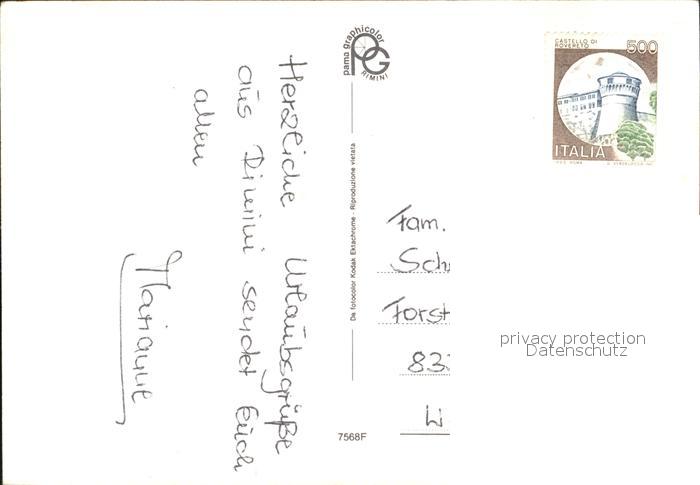 Herzliche Urlaubsgrüße
aus Rimini sendet Euch
allen
Marianne
pama graphicolor
PG
RIMINI
Da fotocolor Kodak Ektachrome - Riproduzione vietata
7568F
CASTELLO DI
ROVERETO
500
ITALIA
Fam.
Sch
Forst
833
W
privacy protection
Datenschutz